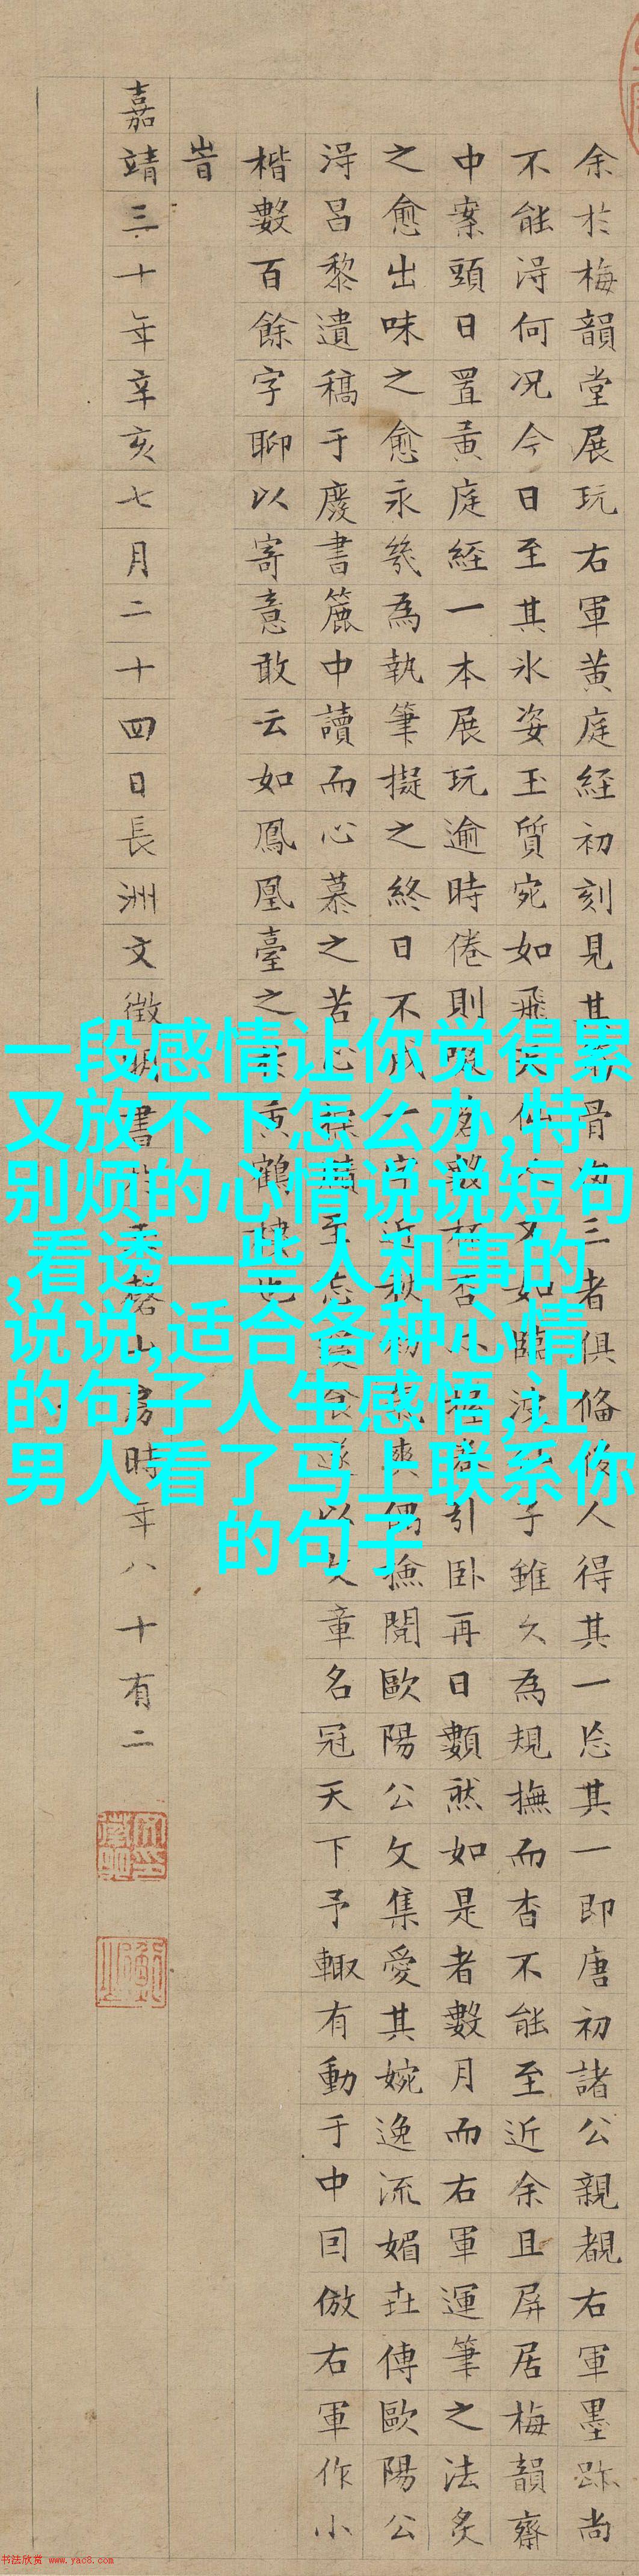 余於梅韻堂展玩右軍黃庭経初刻見其骨三者俱俻後人得其一忘其一即唐初諸公親覩右軍墨跡尚
不能淂何况今日至其氷姿玉質宛如飛又如臨子雖久為規撫而杳不能至近余且屏居梅韻齋
中案頭日置黃庭経一本展玩逾時倦則引卧再日數然如是者數月而右軍運筆之法炙
之愈出味之愈永為執筆擬之終日不近秋爽偶撿閱歐陽公文集愛其婉逸流媚傳歐陽公
淂呂黎遺稿于廢書簏中讀而心慕之苦心至忘食遂以文章名冠天下予輙有動于中囙倣右軍作小
楷數百餘字聊以寄意敢云如鳳凰臺之黃鶴樓也
旹
嘉靖三十年辛亥七月二十四日長洲文徵明書玉磬山房時年八十有二
一段感情让你觉得累
又放不下怎么办,特
别烦的心情说说短句
,看透一些人和事的
说说,适合各种心情
的句子人生感悟,让
男人看了马上联系你
的句子
书法欣赏 www.yac8.com